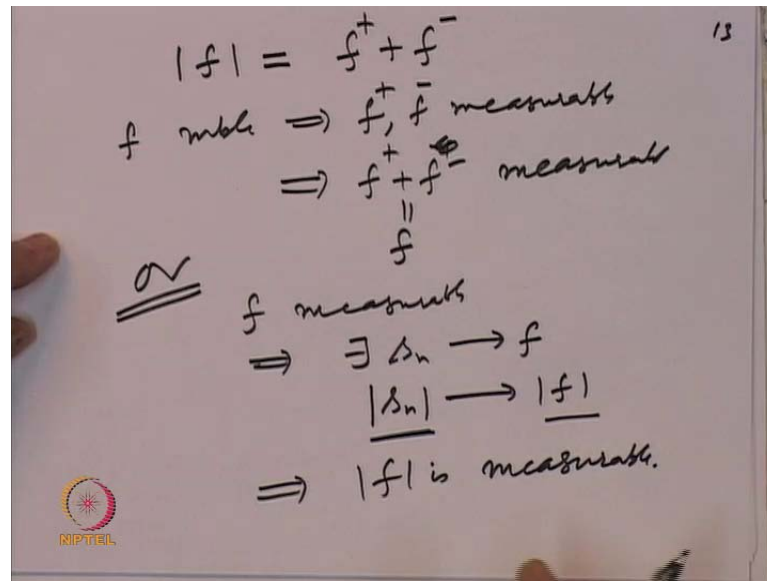 13
|f| = f⁺ + f⁻
f mble ⟹ f⁺, f⁻ measurable
⟹ f⁺ + f⁻ measurable
||
f
or
f measurable
⟹ ∃ sₙ ⟶ f
|sₙ| ⟶ |f|
⟹ |f| is measurable.
NPTEL